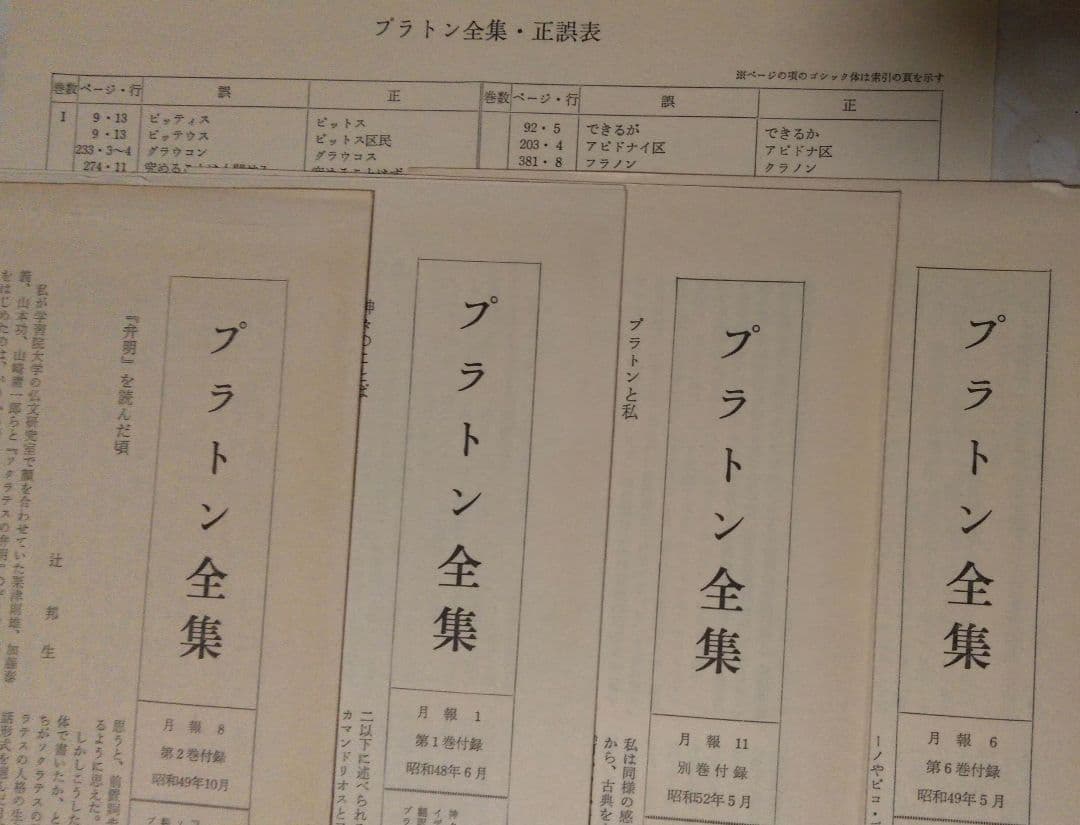 プラトン全集・正誤表
※ページの項のゴシック体は索引の頁を示す
巻数 ページ・行 誤 正 巻数 ページ・行 誤 正
I 9・13 ピッティス ピットス 92・5 できるが できるか
9・13 ピッテウス ピットス区民 203・4 アピドナイ区 アピドナ区
233・3〜4 グラウコン グラウコス 381・8 フラノン クラノン
274・11
プラトン全集
月報 8
第2巻付録
昭和49年10月
『弁明』を読んだ頃
辻邦生
私が学習院大学の仏文研究室で顔を合わせていた粟津則雄、加藤
義、山本功、山崎庸一郎らと『ソクラテスの弁明』の
をはじめたのは、
思うと、前
るように思えた。
しかしこうした
体で書いたか、と
ちがソクラテスの
ラテスの人格の生
話形式を選んだ
プラトン全集
月報 1
第1巻付録
昭和48年6月
神々のことば
二以下に述べられる
カマンドリオスと
プラトン全集
月報 11
別巻付録
昭和52年5月
プラトンと私
私は同様の感
から、古典を
プラトン全集
月報 6
第6巻付録
昭和49年5月
ーノやピコ・